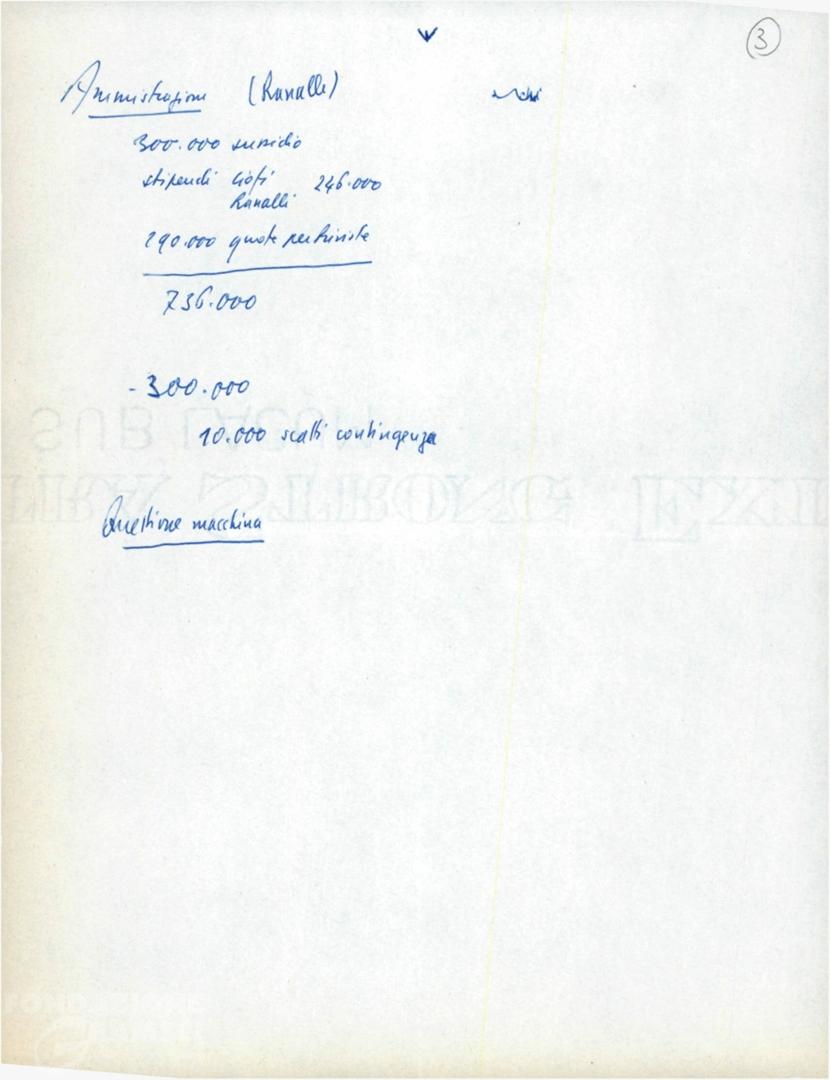 3
Amministrazione (Ranalli)
300.000 sussidio
stipendi Ciofi 246.000
Ranalli
190.000 quote per riviste
736.000
- 300.000
10.000 scatti contingenza
Questione macchina